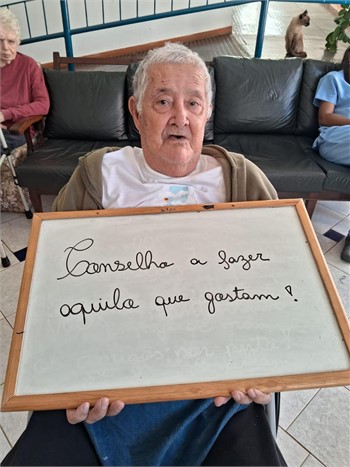 Conselho a fazer
aquilo que gostam!